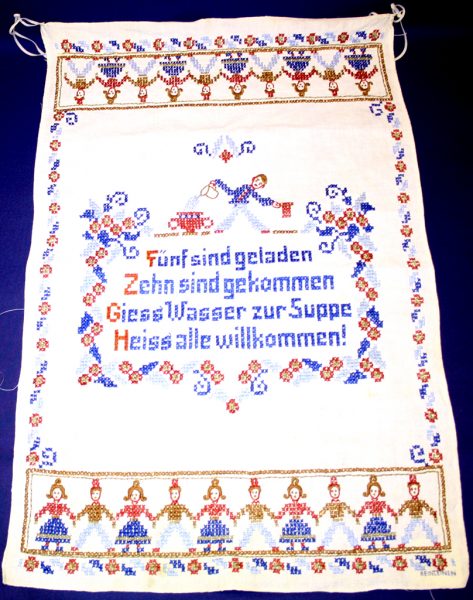 Fünf sind geladen
Zehn sind gekommen
Giess Wasser zur Suppe
Heiss alle willkommen!